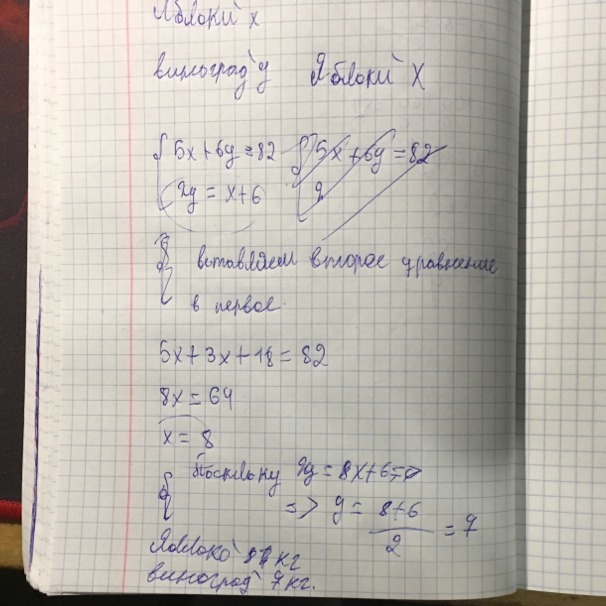 Яблоки x
виноград y Яблоки X
5x+6y=82 5x+6y=82
2y = x+6 2
вставляем второе уравнение
в первое.
5x+3x+18=82
8x=64
x = 8
Поскольку 2y = 8x+6=>
=> y = 8+6 / 2 = 7
Яблоко 8 кг
виноград 7 кг.